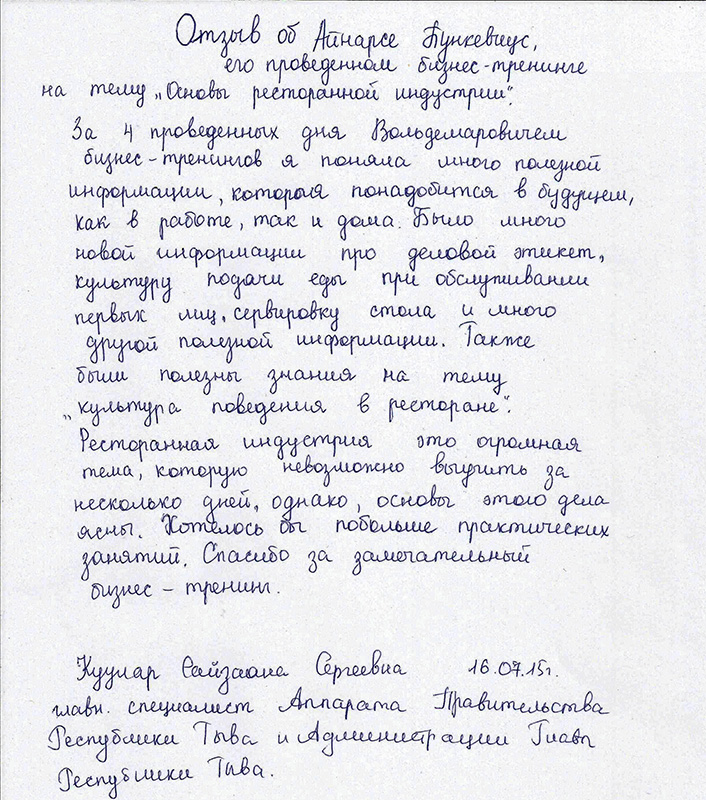 Отзыв об Айнарсе Бункевиус,
его проведенном бизнес-тренинге
на тему „Основы ресторанной индустрии".
За 4 проведенных дня Вольдемаровичем
бизнес-тренингов я поняла много полезной
информации, которыя понадобится в будущем,
как в работе, так и дома. Было много
новой информации про деловой этикет,
культуру подачи еды при обслуживании
первых лиц, сервировку стола и много
другой полезной информации. Также
были полезны знания на тему
„культура поведения в ресторане".
Ресторанная индустрия это огромная
тема, которую невозможно выучить за
несколько дней, однако, основы этого дела
ясны. Хотелось бы побольше практических
занятий. Спасибо за замечательный
бизнес – тренинг.
Куулар Сергеевна 16.07.15г.
главн. специалист Аппарата Правительства
Республики Тыва и Администрации Главы
Республики Тыва.